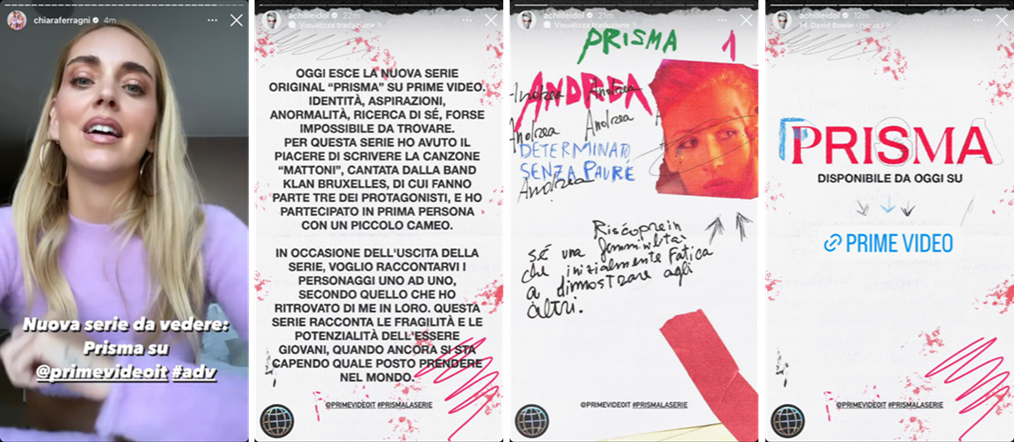 chiaraferragni 4m
Nuova serie da vedere:
Prisma su
@primevideoit #adv
achilleidol 22m
Visualizza traduzione
OGGI ESCE LA NUOVA SERIE
ORIGINAL “PRISMA” SU PRIME VIDEO.
IDENTITÀ, ASPIRAZIONI,
ANORMALITÀ, RICERCA DI SÉ, FORSE
IMPOSSIBILE DA TROVARE.
PER QUESTA SERIE HO AVUTO IL
PIACERE DI SCRIVERE LA CANZONE
“MATTONI”, CANTATA DALLA BAND
KLAN BRUXELLES, DI CUI FANNO
PARTE TRE DEI PROTAGONISTI, E HO
PARTECIPATO IN PRIMA PERSONA
CON UN PICCOLO CAMEO.
IN OCCASIONE DELL'USCITA DELLA
SERIE, VOGLIO RACCONTARVI I
PERSONAGGI UNO AD UNO,
SECONDO QUELLO CHE HO
RITROVATO DI ME IN LORO. QUESTA
SERIE RACCONTA LE FRAGILITÀ E LE
POTENZIALITÀ DELL'ESSERE
GIOVANI, QUANDO ANCORA SI STA
CAPENDO QUALE POSTO PRENDERE
NEL MONDO.
@PRIMEVIDEOIT #PRISMALASERIE
achilleidol 21m
Visualizza traduzione
PRISMA 1
ANDREA
Andrea Andrea
Andrea Andrea
DETERMINATO
SENZA PAURE
Andrea
Riscoprein
sé una femminilità
che inizialmente fatica
a dimostrare agli
altri.
@PRIMEVIDEOIT #PRISMALASERIE
achilleidol 12m
David Bowie
PRISMA
DISPONIBILE DA OGGI SU
PRIME VIDEO
@PRIMEVIDEOIT #PRISMALASERIE